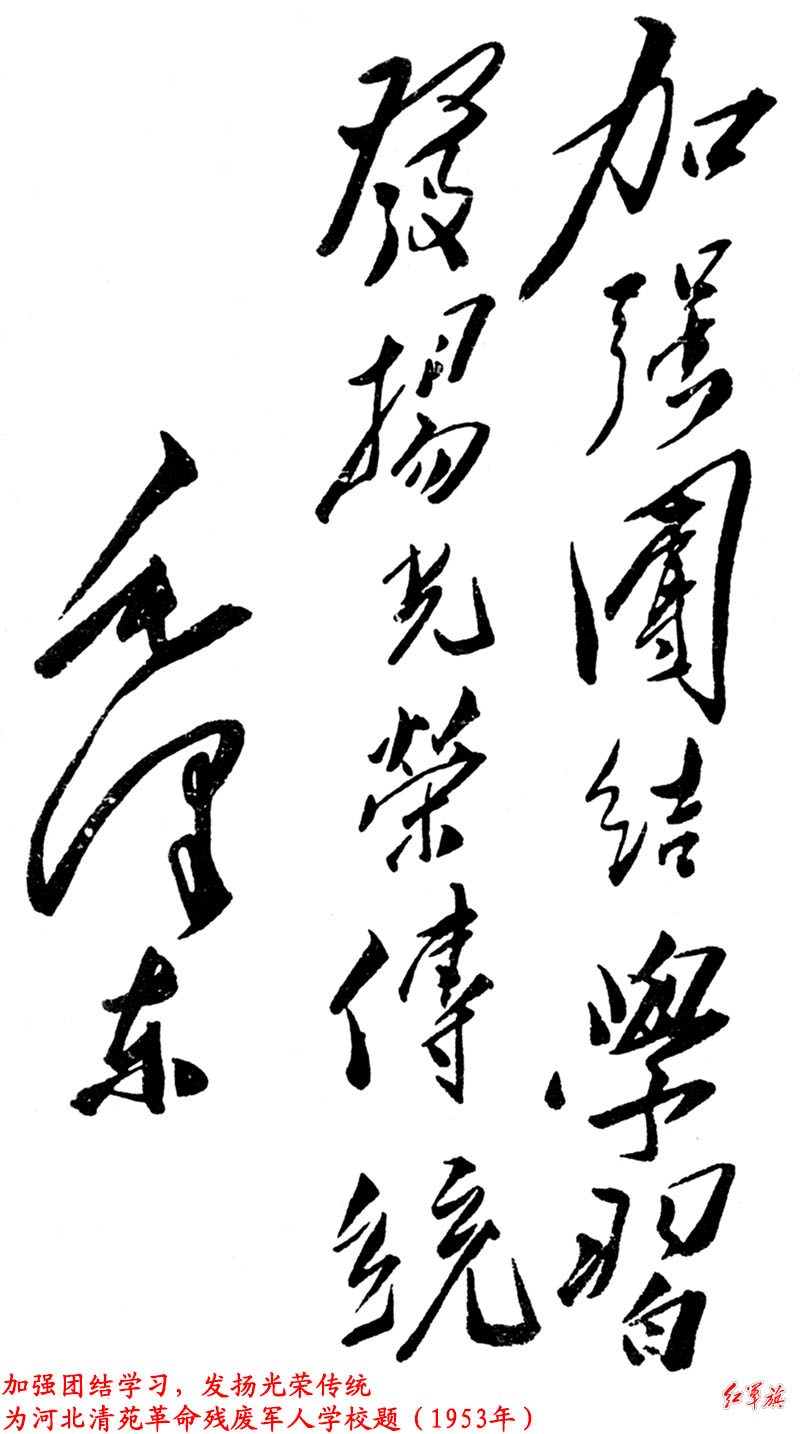 加强團结學習
發揚光榮傳統
毛泽东
加强团结学习，发扬光荣传统
为河北清苑革命残废军人学校题（1953年）
红军旗